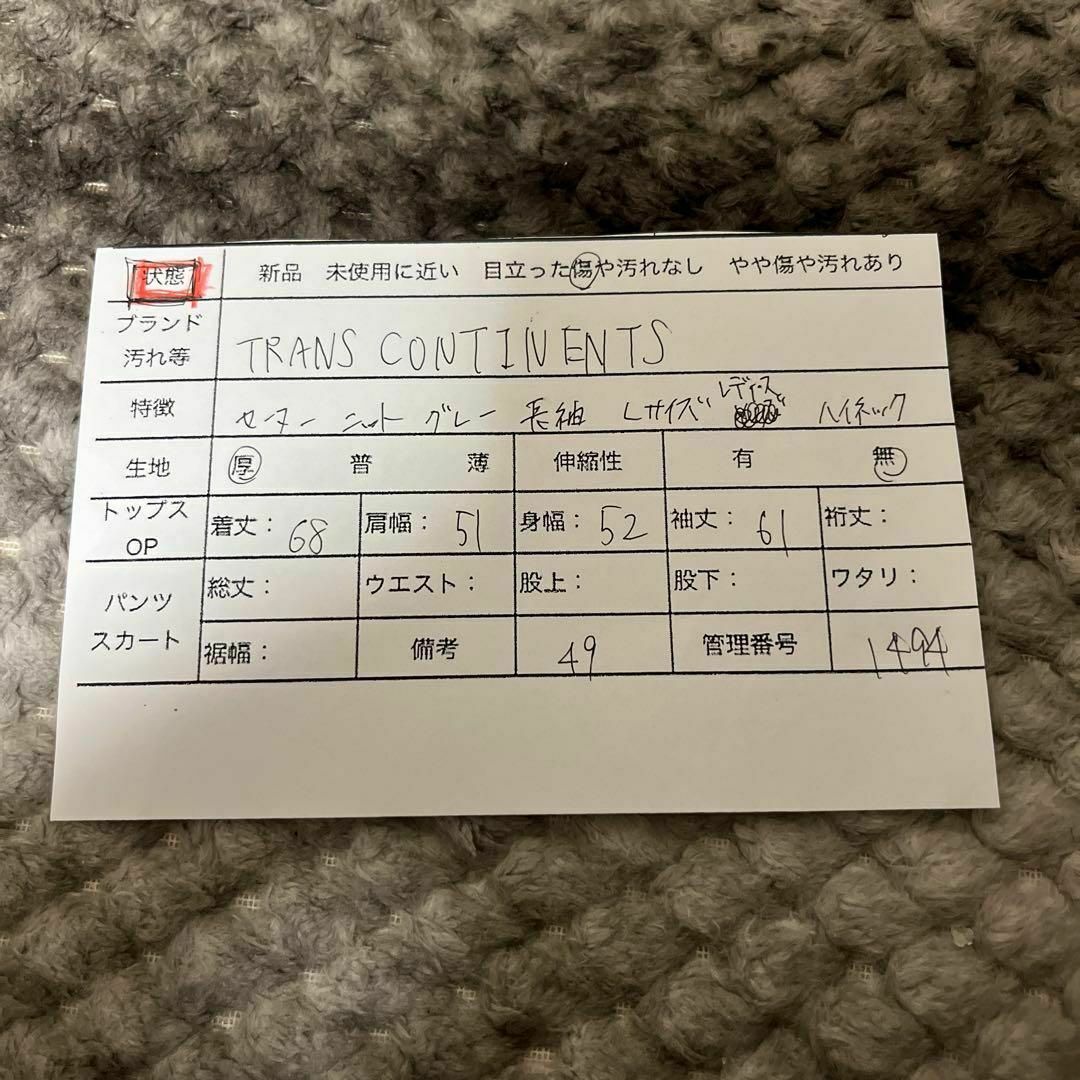 状態 新品 未使用に近い 目立った傷や汚れなし やや傷や汚れあり
ブランド
汚れ等 TRANS CONTINENTS
特徴 セーター ニット グレー 長袖 Lサイズ レディース ハイネック
生地 厚 普 薄 伸縮性 有 無
トップス
OP 着丈: 68 肩幅: 51 身幅: 52 袖丈: 61 裄丈:
パンツ
スカート 総丈: ウエスト: 股上: 股下: ワタリ:
裾幅: 備考 49 管理番号 1494